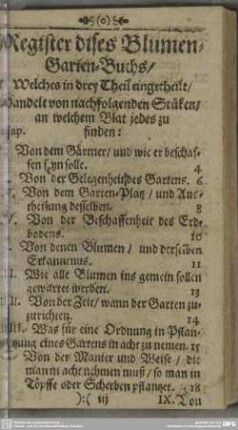 (o)
Register dises Blumen-
Garten-Buchs/
Welches in drey Theil eingetheilt/
handelt von nachfolgenden Stüken/
an welchem Blat jedes zu
Cap. finden:
Von dem Gärtner/ und wie er beschaf-
fen seyn solle. 4
Von der Gelegenheit des Gartens. 6
Von dem Garten-Platz/ und Auß-
theilung desselben. 8
Von der Beschaffenheit des Erd-
bodens. 10
Von denen Blumen/ und derselben
Erkantnus. 11
Wie alle Blumen ins gemein sollen
gewartet werden. 13
Von der Zeit/ wann der Garten zu-
zurichten. 14
Was für eine Ordnung in Pflan-
tzung eines Gartens in acht zu nemen. 15
Von der Manier und Weise/ die
man in acht nehmen muß/ so man in
Töpffe oder Scherben pflantzet. 18
):( iij IX. Von